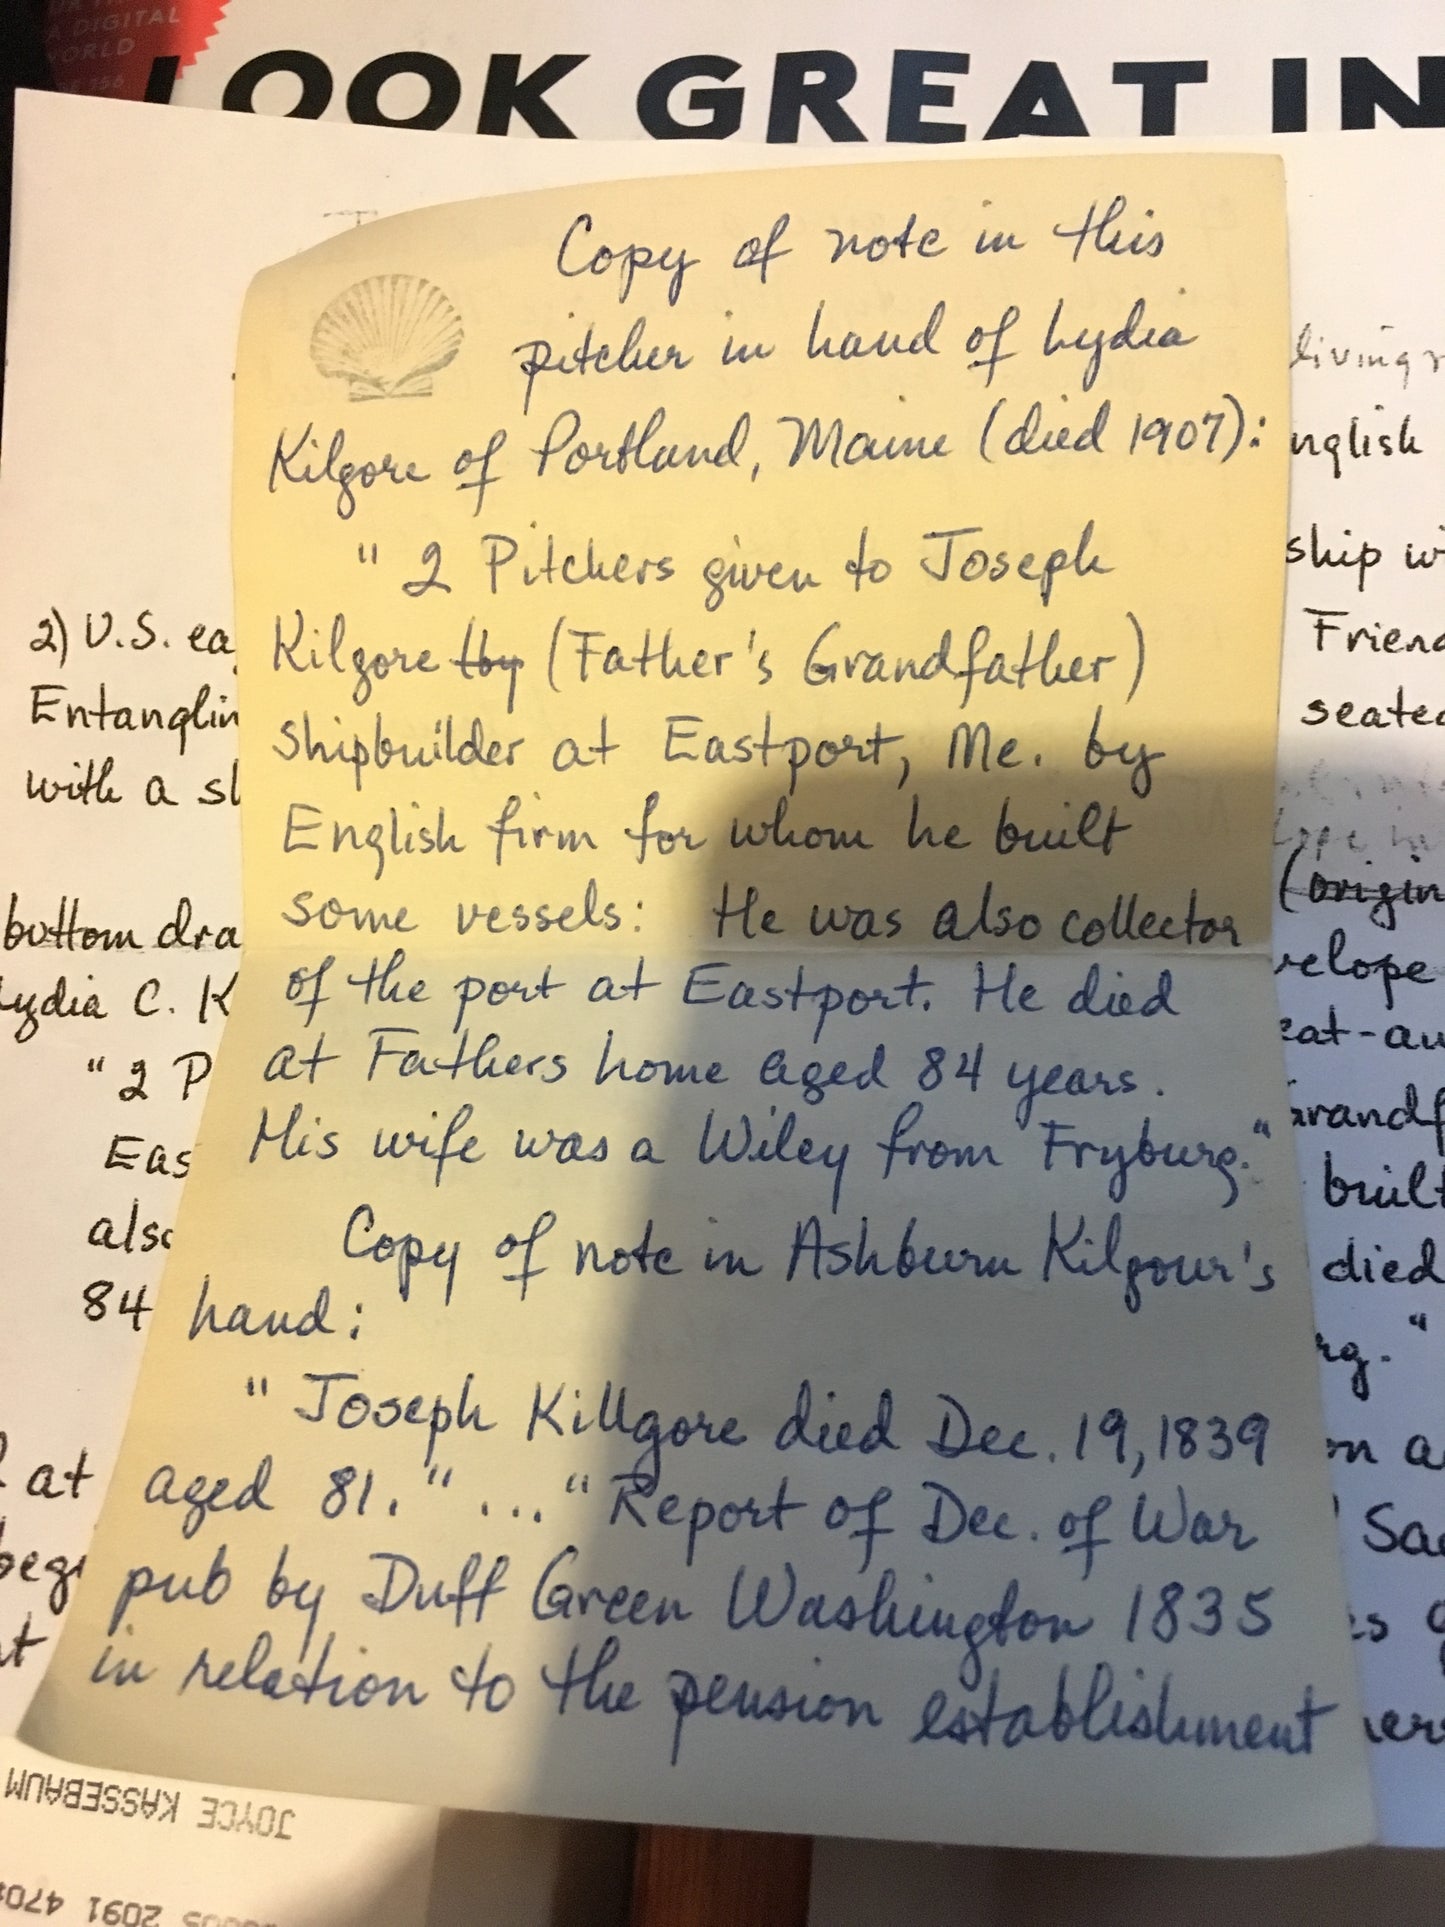 A DIGITAL
WORLD
LOOK GREAT IN
Copy of note in this
pitcher in hand of Lydia
Kilgore of Portland, Maine (died 1907):
" 2 Pitchers given to Joseph
Kilgore (by (Father's Grandfather)
shipbuilder at Eastport, Me. by
English firm for whom he built
some vessels: He was also collector
of the port at Eastport. He died
at Fathers home aged 84 years.
His wife was a Wiley from Fryburg."
Copy of note in Ashburn Kilgour's
hand:
" Joseph Killgore died Dec. 19, 1839
aged 81." ... " Report of Dec. of War
pub by Duff Green Washington 1835
in relation to the pension establishment
2) U.S. ea
Entanglin
with a sh
bottom dra
Lydia C. K
" 2 P
Eas
also
84
at
begi
living r
nglish
ship wi
Friend
seated
(origin
velope
eat-au
Grandf
built
died
rg."
on a
Sac
JOYCE KASSEBAUM
2091 470